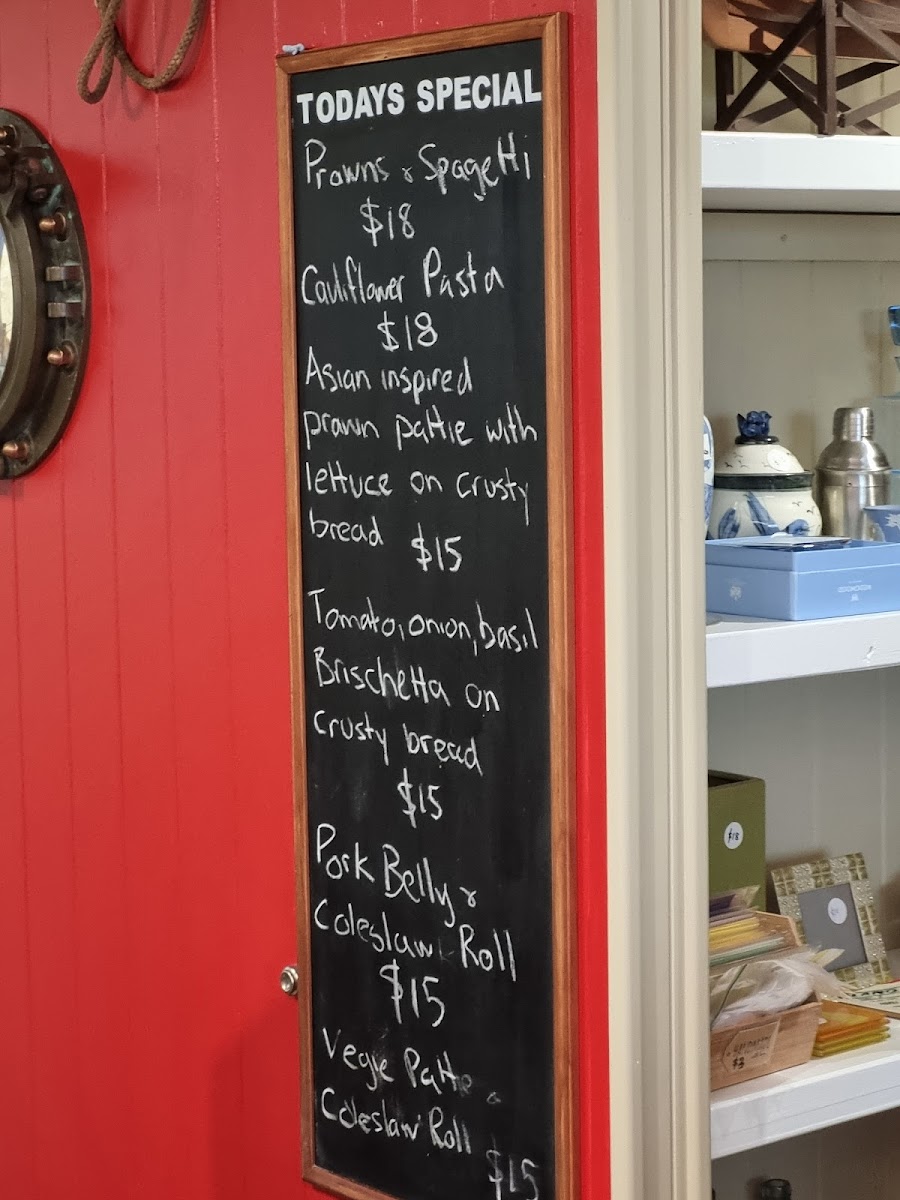 TODAYS SPECIAL
Prawns & Spagetti
$18
Cauliflower Pasta
$18
Asian inspired
prawn pattie with
lettuce on crusty
bread $15
Tomato, onion, basil
Brischetta on
crusty bread
$15
Pork Belly &
Coleslaw Roll
$15
Vegie Pattie &
Coleslaw Roll
$15
$18